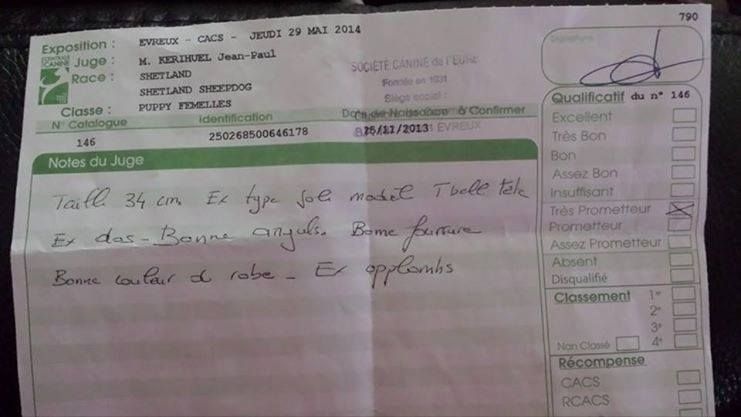 790
Exposition : EVREUX - CACS - JEUDI 29 MAI 2014
CENTRALE CANINE
Juge : M. KERIHUEL Jean-Paul
Race : SHETLAND
SHETLAND SHEEPDOG
Classe : PUPPY FEMELLES
SOCIÉTÉ CANINE de l'EURE
Fondée en 1931
Siège social :
EVREUX
Signature
N° Catalogue Identification Date de Naissance à Confirmer
146 250268500646178 25/11/2013
Notes du Juge
Taille 34 cm Ex type Joli model T belle tête
Ex dos - Bonne anguls. Bonne fourrure
Bonne couleur de robe - Ex applombs
Qualificatif du n° 146
Excellent
Très Bon
Bon
Assez Bon
Insuffisant
Très Prometteur
Prometteur
Assez Prometteur
Absent
Disqualifié
Classement 1er
2e
3e
Non Classé 4e
Récompense
CACS
RCACS